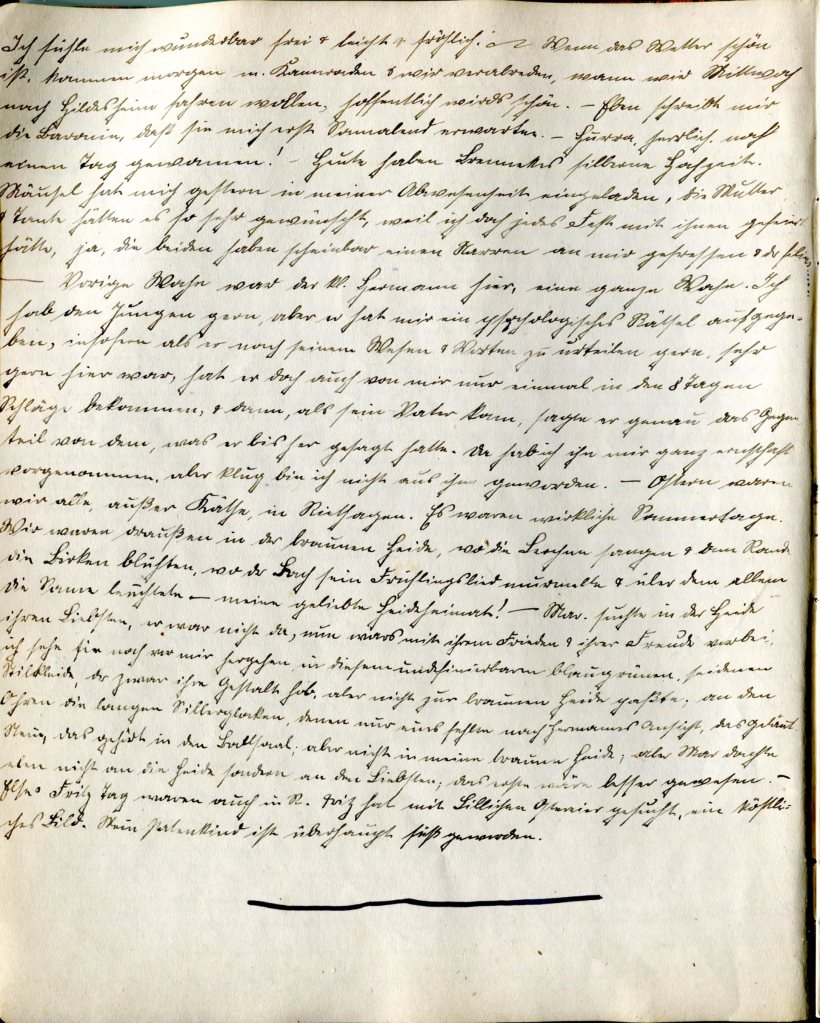 Ich fühle mich wunderbar frei & leicht & fröhlich. – Wenn das Wetter schön
ist, kommen morgen m. Kameraden & wir verabreden, wann wir Mittwoch
nach Hildesheim fahren wollen, hoffentlich wirds schön. – Eben schreibt mir
die Baronin, daß sie mich erst Sonnabend erwarte. – Hurra, herrlich, noch
einen Tag gewonnen! – Heute haben Brennekes silberne Hochzeit.
Mäusel hat mich gestern in meiner Abwesenheit eingeladen, die Mutter
& Tante hätten es so sehr gewünscht, weil ich doch jedes Fest mit ihnen gefeiert
hätte, ja, die beiden haben scheinbar einen Narren an mir gefressen & der
– Vorige Woche war der kl. Hermann hier, eine ganze Woche. Ich
hab den Jungen gern, aber er hat mir ein psychologisches Rätsel aufgege-
ben, insofern als er nach seinem Wesen & Worten zu urteilen gern, sehr
gern hier war, hat er doch auch von mir nur einmal in den 8 Tagen
Schläge bekommen, & dann, als sein Vater kam, sagte er genau das Gegen-
teil von dem, was er bisher gesagt hatte. Da hab ich ihn mir ganz ernsthaft
vorgenommen, aber klug bin ich nicht aus ihm geworden. – Ostern waren
wir alle, außer Käthe, in Riethagen. Es waren wirkliche Sommertage.
Wir waren draußen in der braunen Heide, wo die Lerchen sangen & am Rande
die Birken blühten, wo der Bach sein Frühlingslied murmelte & über dem allem
die Sonne leuchtete – meine geliebte Heideheimat! – Mar. suchte in der Heide
ihren Liebsten, er war nicht da, nun wars mit ihrem Frieden & ihrer Freude vorbei.
ich sehe sie noch vor mir hergehen in diesem undefinierbaren blaugrünen, seidenen
Stilkleide, das zwar ihre Gestalt hob, aber nicht zur braunen Heide paßte; an den
Ohren die langen Silberglocken, denen nur eins fehlte nach Hermanns Ansicht, das Geläut.
Nein, das gehört in den Ballsaal, aber nicht in meine braune Heide; aber Mar dachte
eben nicht an die Heide sondern an den Liebsten; das erste wäre besser gewesen. –
Else & Fritz Tag waren auch in R. Fritz hat mit Lillichen Ostereier gesucht, ein köstli-
ches Bild. Mein Patenkind ist überhaupt süß geworden.